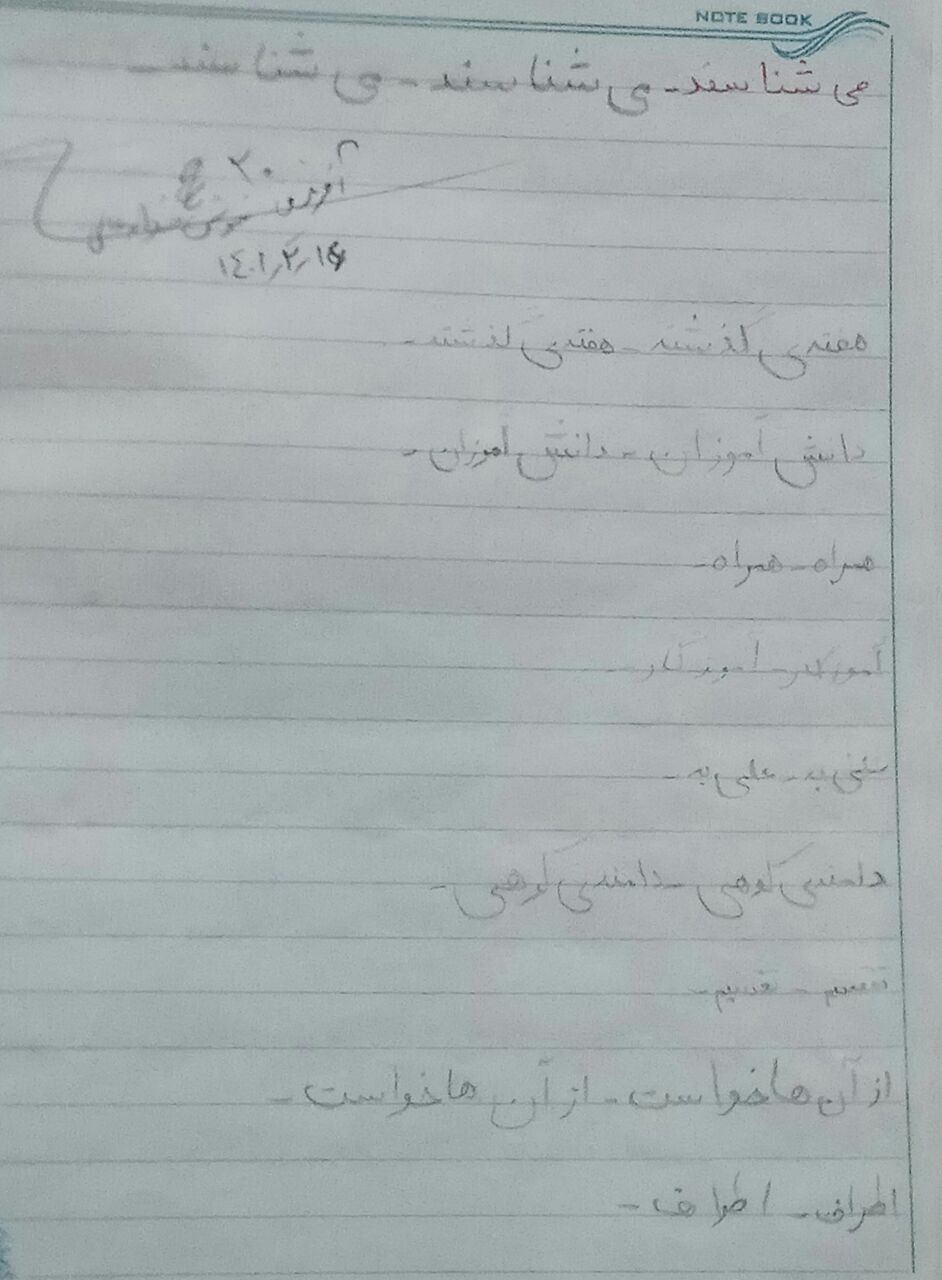 NOTE BOOK
می شناسند - می شناسند - می شناسند -
۲۰
آفرین خوش
۱۴۰۱٫۲٫۱۶
هفته ی گذشته - هفته ی گذشته -
دانش آموزان - دانش آموزان -
همراه - همراه -
آموزگار - آموزگار -
علمی به -
دامنه ی کوهی - دامنه ی کوهی -
تقسیم - تقسیم -
از آن ها خواست - از آن ها خواست -
اطراف - اطراف -